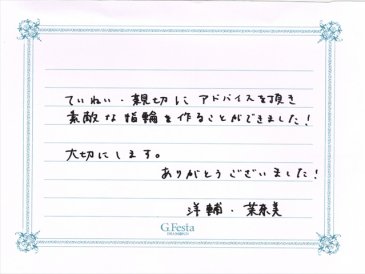 ていねい・親切に アドバイスを頂き
素敵な指輪を作ることができました!
大切にします。
ありがとうございました!
洋輔・菜奈美
G.Festa